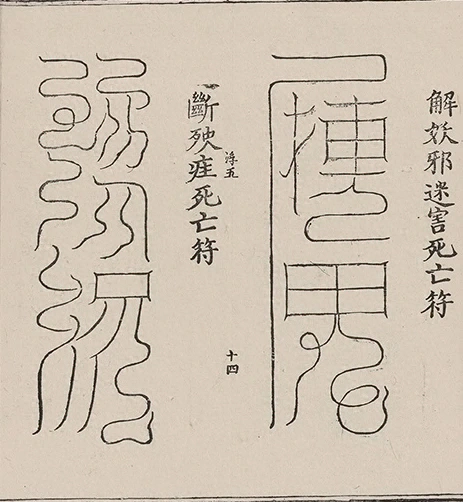 解妖邪迷害死亡符
斷殃疰死亡符
浮五
十四